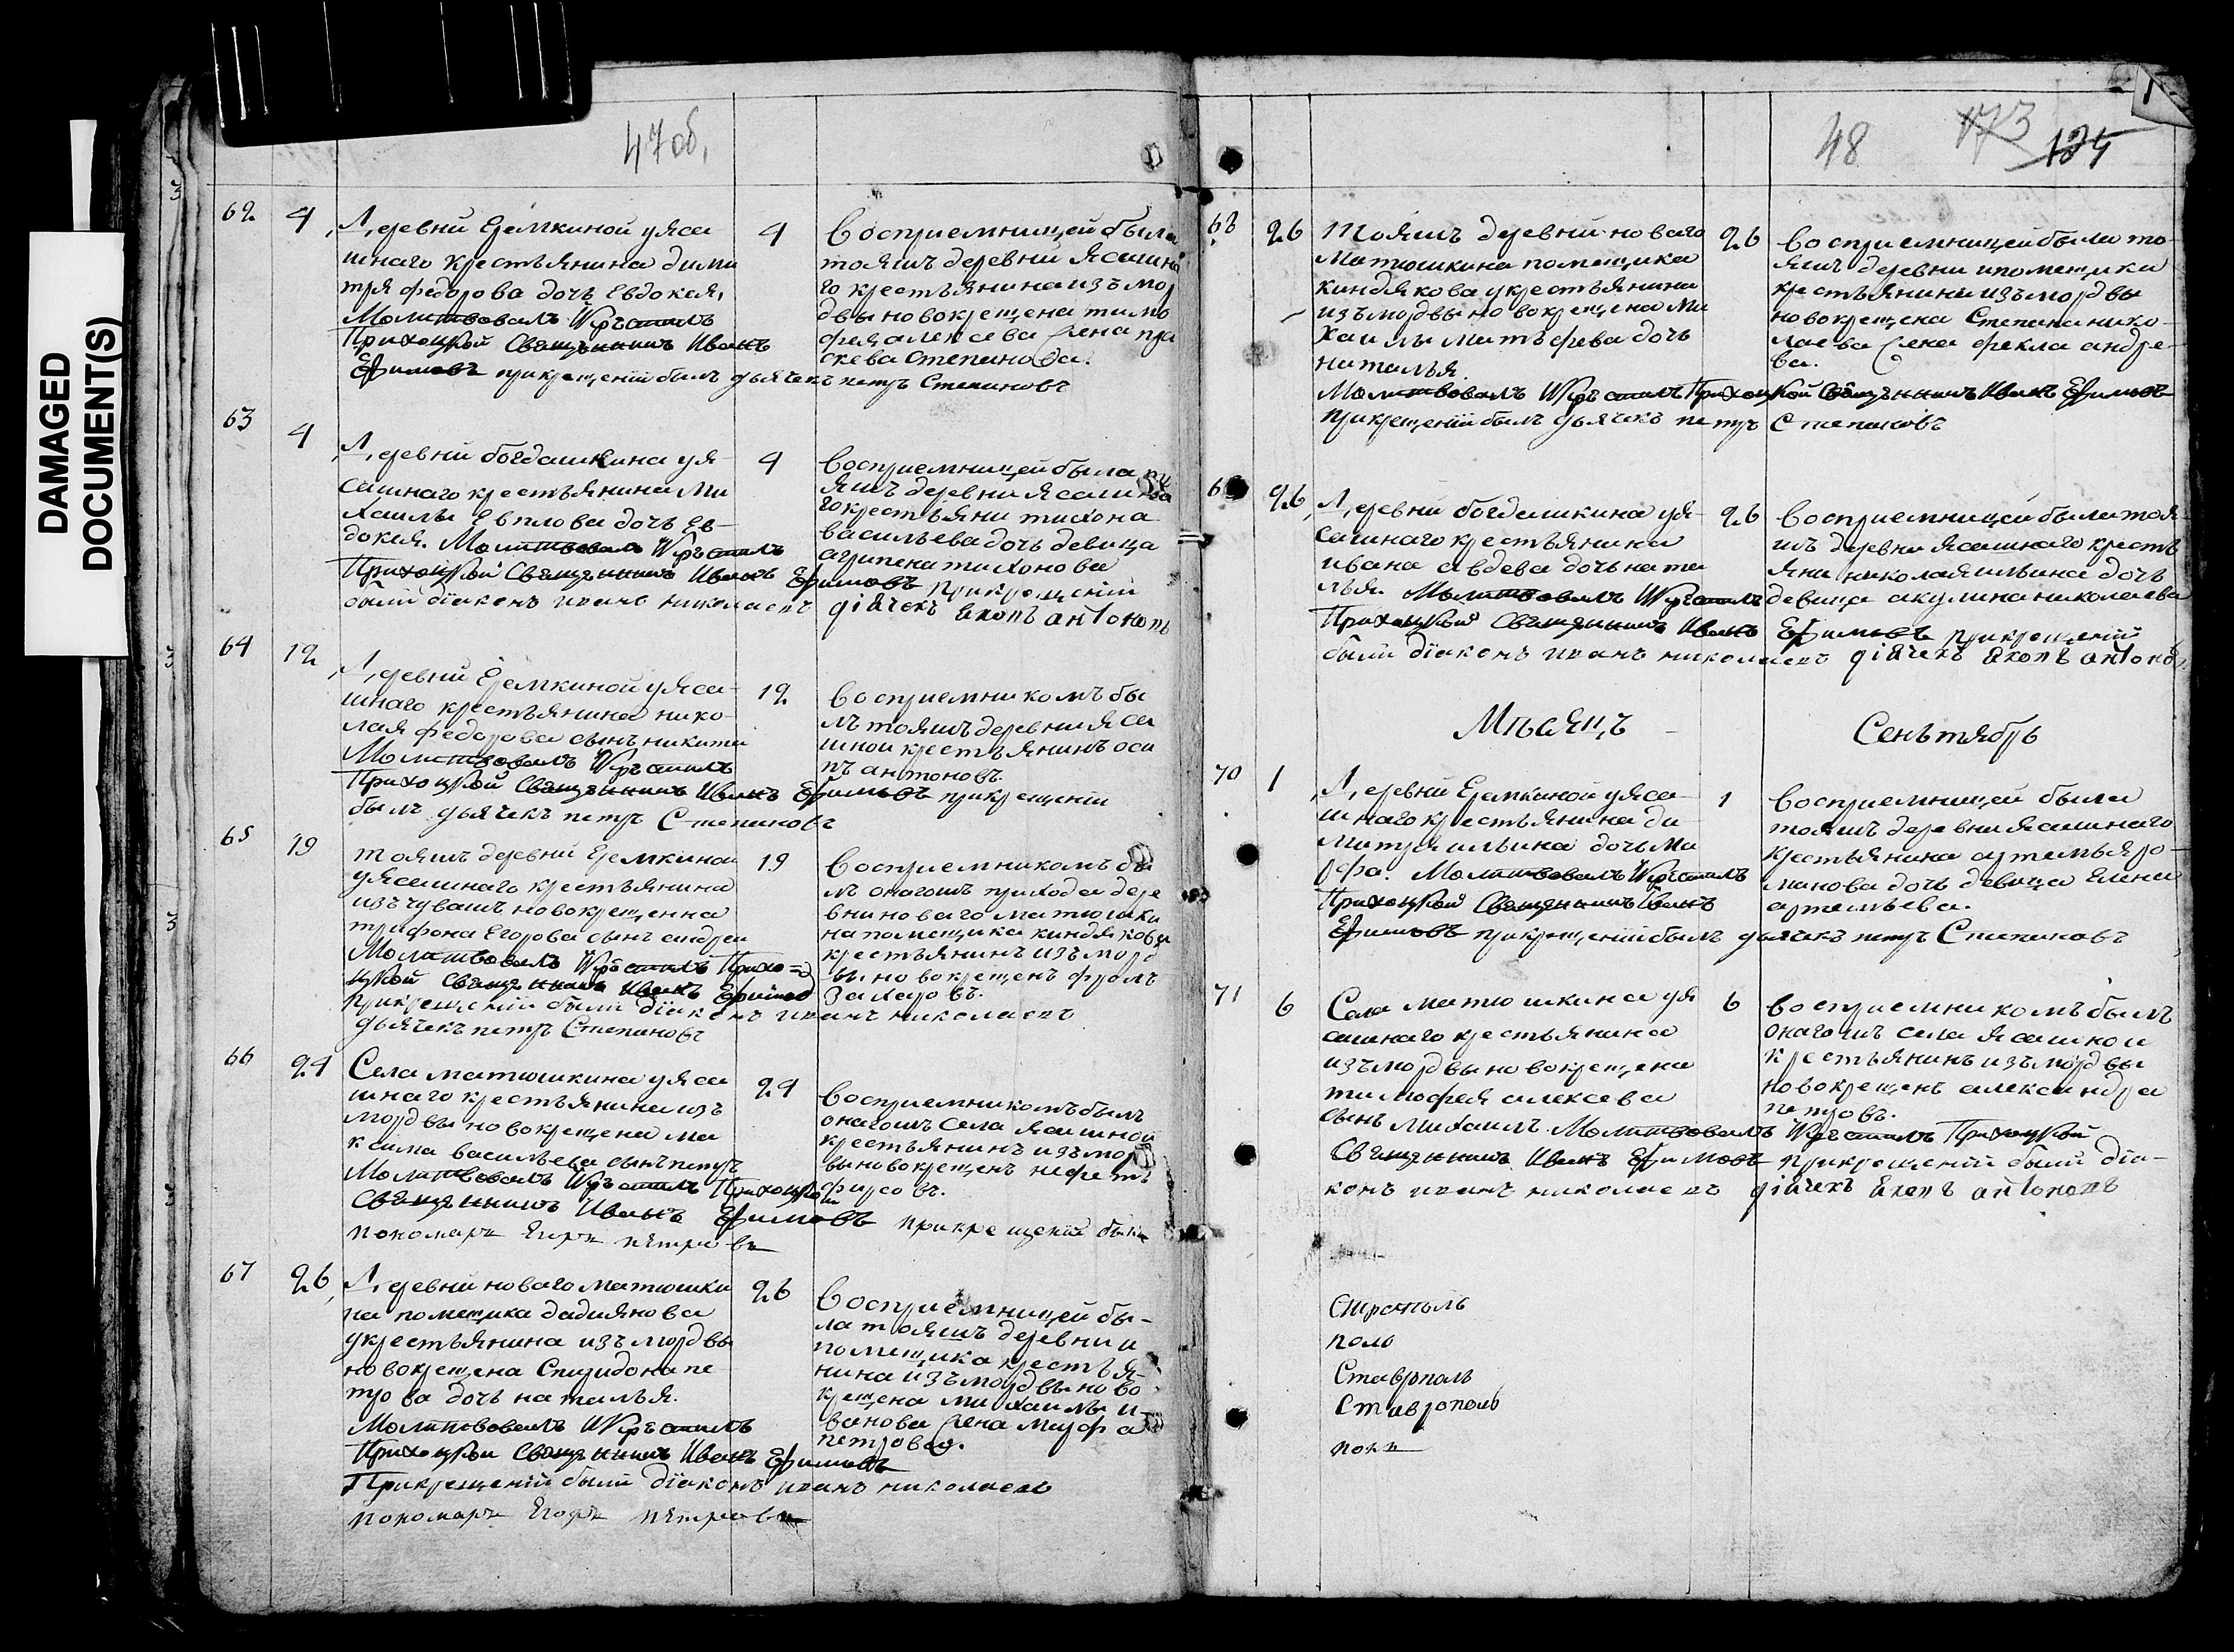 DAMAGED
DOCUMENT(S)
47 об.
62 4 Деревни Еремкиной у яса
шнаго крестьянина дими
трия федорова дочь Евдокея,
Молитвовалъ И крѣстилъ
Приходской Священникъ Иванъ
Ефимовъ прикрещенїи былъ дьячекъ петръ Степановъ
4 восприемницей была
тояжъ деревни ясашна
го крестьянина изъ мор
двы новокрещена тимо
фея алексева жена пра
скева Степанова.
63 4 Деревни богдашкина у я
сашнаго крестьянина Ми
хаилы Евплова дочь Ев-
докея. Молитвовалъ И крѣстилъ
Приходской Священникъ Иванъ Ефимовъ прикрещенїи
были дїаконъ иванъ николаевъ дїячекъ яковъ антоновъ
4 восприемницей была то
яжъ деревни ясашна
го крестьяни тихона
васильева дочь девица
агрипена тихонова
64 12 Деревни Еремкиной у яса-
шнаго крестьянина нико-
лая федорова сынъ никита
Молитвовалъ И крѣстилъ
Приходской Священникъ Иванъ Ефимовъ прикрещенїи
былъ дьячекъ петръ Степановъ
12 восприемникомъ бы
лъ тояжъ деревни яса
шной крестьянинъ оси
пъ антоновъ.
65 19 тояжъ деревни Еремкиной
у ясашнаго крестьянина
изъ чувашъ новокрещенна
трифона Егорова сынъ андреи
Молитвовалъ И крѣстилъ Прихо=
дской Священникъ Иванъ Ефимов
прикрещенїи были дїаконъ иванъ николаевъ
дьячекъ петръ Степановъ
19 восприемникомъ бы
лъ онагожъ прихода дере
вни новаго матюшки
на помещика киндякова
крестьянинъ изъ морд
вы новокрещенъ фролъ
Захаровъ.
66 24 Села матюшкина у яса
шнаго крестьянина изъ
мордвы новокрещена ма
ксима васильева сынъ петръ
Молитвовалъ И крѣстилъ Приходской
Священникъ Иванъ Ефимовъ прикрещенїи былъ
пономарь Егоръ петровъ
24 восприемникомъ былъ
онагожъ села ясашной
крестьянинъ изъ морд
вы новокрещенъ нефедъ
фирсовъ.
67 26 Деревни новаго матюшки
на помещика дадиянова
у крестьянина изъ мордвы
новокрещена Спиридона пе
трова дочь наталья.
Молитвовалъ И крѣстилъ
Приходской Священникъ Иванъ Ефимовъ
Прикрещенїи были дїаконъ иванъ николаевъ
пономарь Егоръ петровъ
26 восприемницей бы-
ла тояжъ деревни и
помещика крестья-
нина изъ мордвы ново
крещена михаилы и-
ванова жена марфа
петрова.
48 173 124
68 26 Тояжъ деревни новаго
Матюшкина помещика
киндякова у крестьянина
изъ мордвы новокрещена ми
хаилы матьфева дочь
наталья.
Молитвовалъ И крѣстилъ Приходской Священникъ Иванъ Ефимовъ
прикрещенїи былъ дьячекъ петръ Степановъ
26 восприемницей была то-
яжъ деревни и помещика
крестьянина изъ мордвы
новокрещена Степана нико-
лаева жена фекла андре-
ва.
26 Деревни богдашкина у я-
сашнаго крестьянина
ивана авдева дочь ната
лья. Молитвовалъ И крѣстилъ
Приходской Священникъ Иванъ Ефимовъ прикрещенїи
были дїаконъ иванъ николаевъ дїячекъ яковъ антоновъ
26 восприемницей была тоя-
жъ деревни ясашнаго кресть
яни николая ильина дочь
девица акулина николаева
Мѣсяцъ Сеньтябрь
70 1 Деревни Еремкиной у яса-
шнаго крестьянина ди
митрия ильина дочь Ма
рфа. Молитвовалъ И крѣстилъ
Приходской Священникъ Иванъ
Ефимовъ прикрещенїи былъ дьячекъ петръ Степановъ
1 восприемницей была
тояжъ деревни ясашнаго
крестьянина артемья ро-
манова дочь девица Елена
артемьева.
71 6 Села матюшкина у я
сашнаго крестьянина
изъ мордвы новокрещена
тимофея алексева
сынъ михаилъ. Молитвовалъ И крѣстилъ Приходской
Священникъ Иванъ Ефимовъ прикрещенїи были дїа-
конъ иванъ николаевъ дїячекъ яковъ антоновъ
6 восприемникомъ былъ
онагожъ села ясашнои
крестьянинъ изъ мордвы
новокрещенъ александра
петровъ.
поль
Ставрополь
Ставрополь